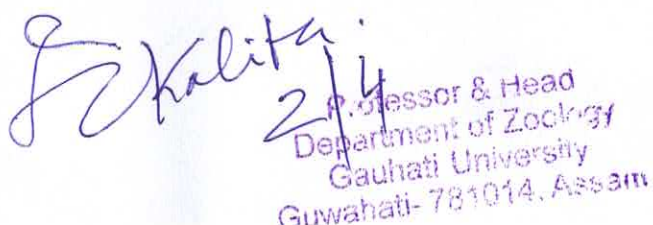 Kalita.
2/4
Professor & Head
Department of Zoology
Gauhati University
Guwahati- 781014. Assam